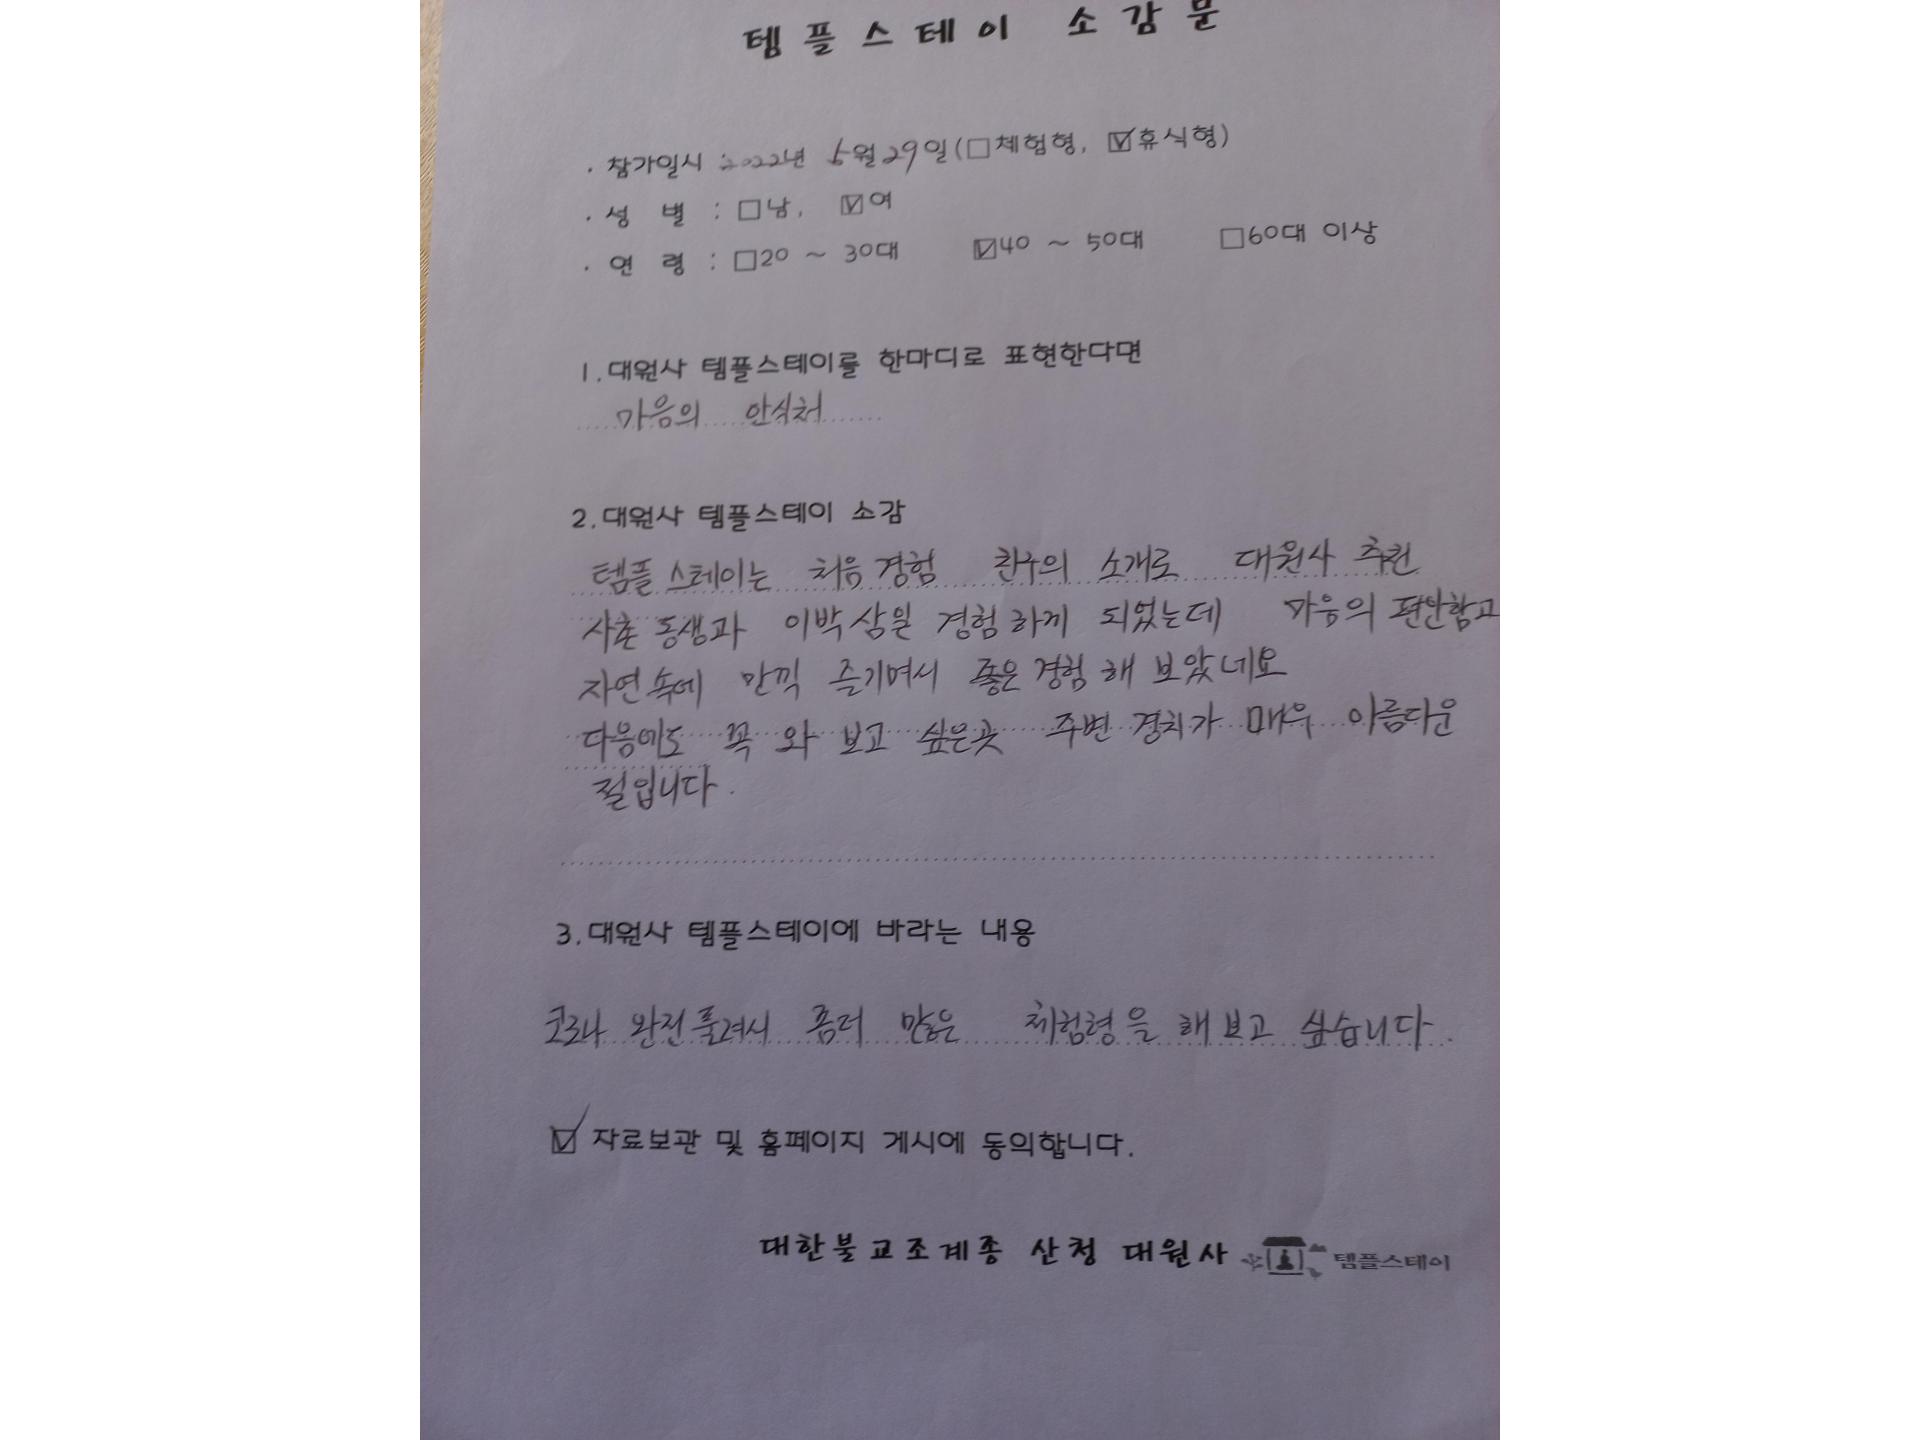 템플스테이 소감문
· 참가일시 : 2022년 5월 29일 (□체험형, ☑휴식형)
· 성 별 : □남, ☑여
· 연 령 : □20 ~ 30대 ☑40 ~ 50대 □60대 이상
1. 대원사 템플스테이를 한마디로 표현한다면
마음의 안식처
2. 대원사 템플스테이 소감
템플스테이는 처음 경험 친구의 소개로 대원사 추천
사촌 동생과 이박삼일 경험하게 되었는데 마음의 편안함고
자연속에 만끽 즐기며서 좋은 경험 해 보았네요
다음에도 꼭 와 보고 싶은곳 주변 경치가 매우 아름다운
절입니다.
3. 대원사 템플스테이에 바라는 내용
코로나 완전 풀려서 좀더 많은 체험형을 해보고 싶습니다.
☑ 자료보관 및 홈페이지 게시에 동의합니다.
대한불교조계종 산청 대원사 템플스테이